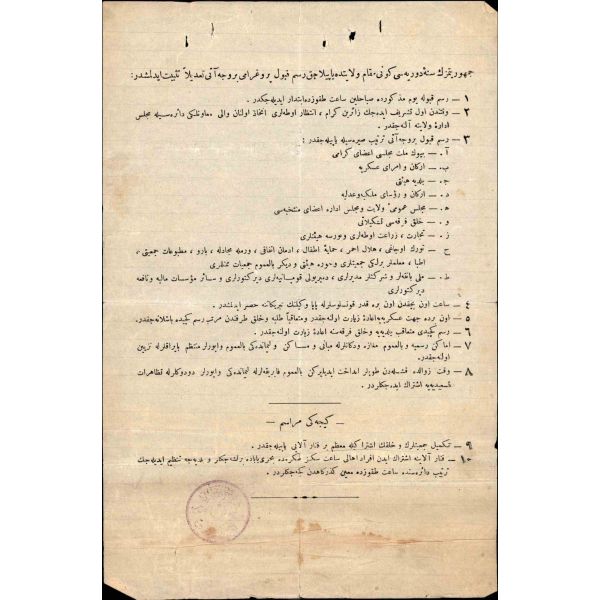 جمهوریتمزك سنهٔ دوریه‌سی كونی مقام ولایتده یاپیلاجق رسم قبول پروغرامی بروجه آتی تعدیلاً تثبیت ایدلمشدر :
١ — رسم قبوله یوم مذكورده صباحلین ساعت طقوزده ابتدار ایدیله‌جكدر.
٢ — وقتندن اول تشریف ایده‌جك زائرین كرام ، انتظار اوطه‌لری اتخاذ اولنان والی معاونلكی دائره‌سیله مجلس
ادارهٔ ولایته آلنه‌جقدر.
٣ — رسم قبول بروجه آتی ترتیب صره‌سیله یاپیله‌جقدر :
آ . — بیوك ملت مجلسی اعضای كرامی
ب. — اركان و امرای عسكریه
ج . — بلدیه هیئتی
د . — اركان و رؤسای ملكیه وعدلیه
ه‍ . — مجلس عمومیٔ ولایت ومجلس اداره اعضای منتخبه‌سی
و . — خلق فرقه‌سی تشكیلاتی
ز . — تجارت ، زراعت اوطه‌لری وبورسه هیئتلری
ح — تورك اوجاغی ، هلال احمر ، حمایهٔ اطفال ، ادمان اتفاقی ، ورمله مجادله ، بارو ، مطبوعات جمعیتی ،
اطبا ، معلملر برلكی جمعیتلری وحوزه هیئتی و دیكر بالعموم جمعیات ممثللری
ط. — ملی بانقه‌لر و شركتلر مدیرلری ، دمیریولی قومپانیه‌لری دیركتورلری و سائر مؤسسات مالیه ونافعه
دیركتورلری
٤ — ساعت اون بچقدن اون بره قدر قونسولوسلرله پاپا وكیلنك تبریكاتنه حصر ایدلمشدر .
٥ — اون برده جهت عسكریه‌یه اعادهٔ زیارت اولنه‌جقدر ومتعاقباً طلبه وخلق طرفندن مرتب رسم كچیده باشلانه‌جقدر.
٦ — رسم كچیدی متعاقب بلدیه‌یه و خلق فرقه‌سنه اعادهٔ زیارت اولنه‌جقدر.
٧ — اماكن رسمیه و بالعموم مغازه ودكانلرله مبانی و مساكن و لیمانده‌كی بالعموم واپورلر منتظم بایراقلرله تزیین
اولنه‌جقدر.
٨ — وقت زوالده قشله‌دن طوپلر انداخت ایدیلیركن بالعموم فابریقه‌لرله لیمانده‌كی واپورلر دودوكلرله تظاهرات
تسعیدیه‌یه اشتراك ایده‌جكلردر.
— كیجه‌كی مراسم —
٩ — تكمیل جمعیتلرك و خلقك اشتراكیله معظم بر فنار آلایی یاپیله‌جقدر .
١٠ — فنار آلاینه اشتراك ایدن افراد اهالی ساعت سكز بره‌جكلر و بلدیه‌جه تنظیم ایدیله‌جك
ترتیب دائره‌سنده ساعت طقوزده معین كذركاهدن كچه‌جكلردر.